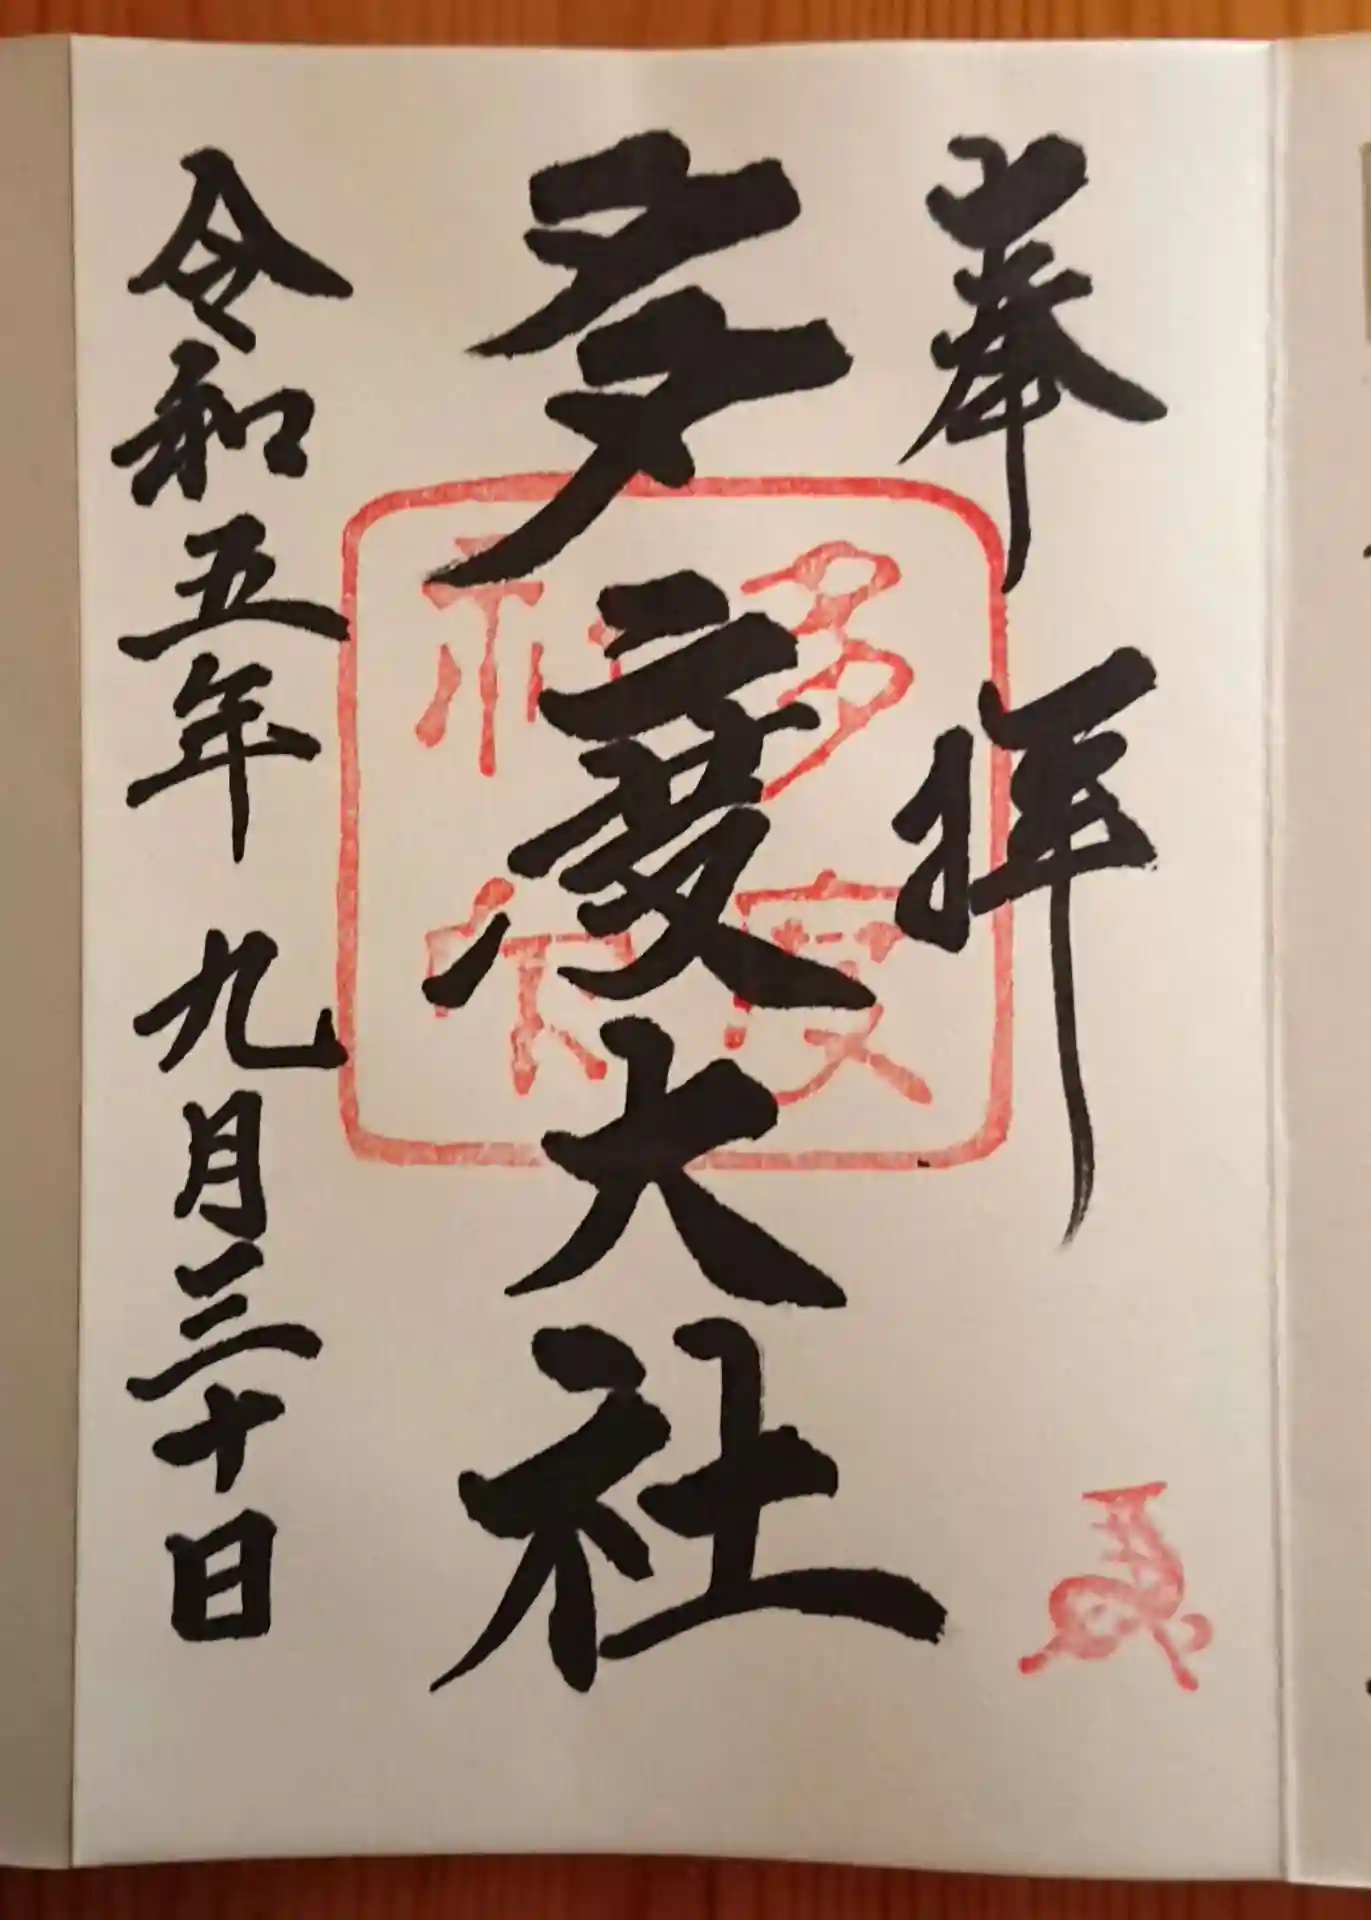 奉拝
多度大社
令和五年 九月三十日
多度
神社